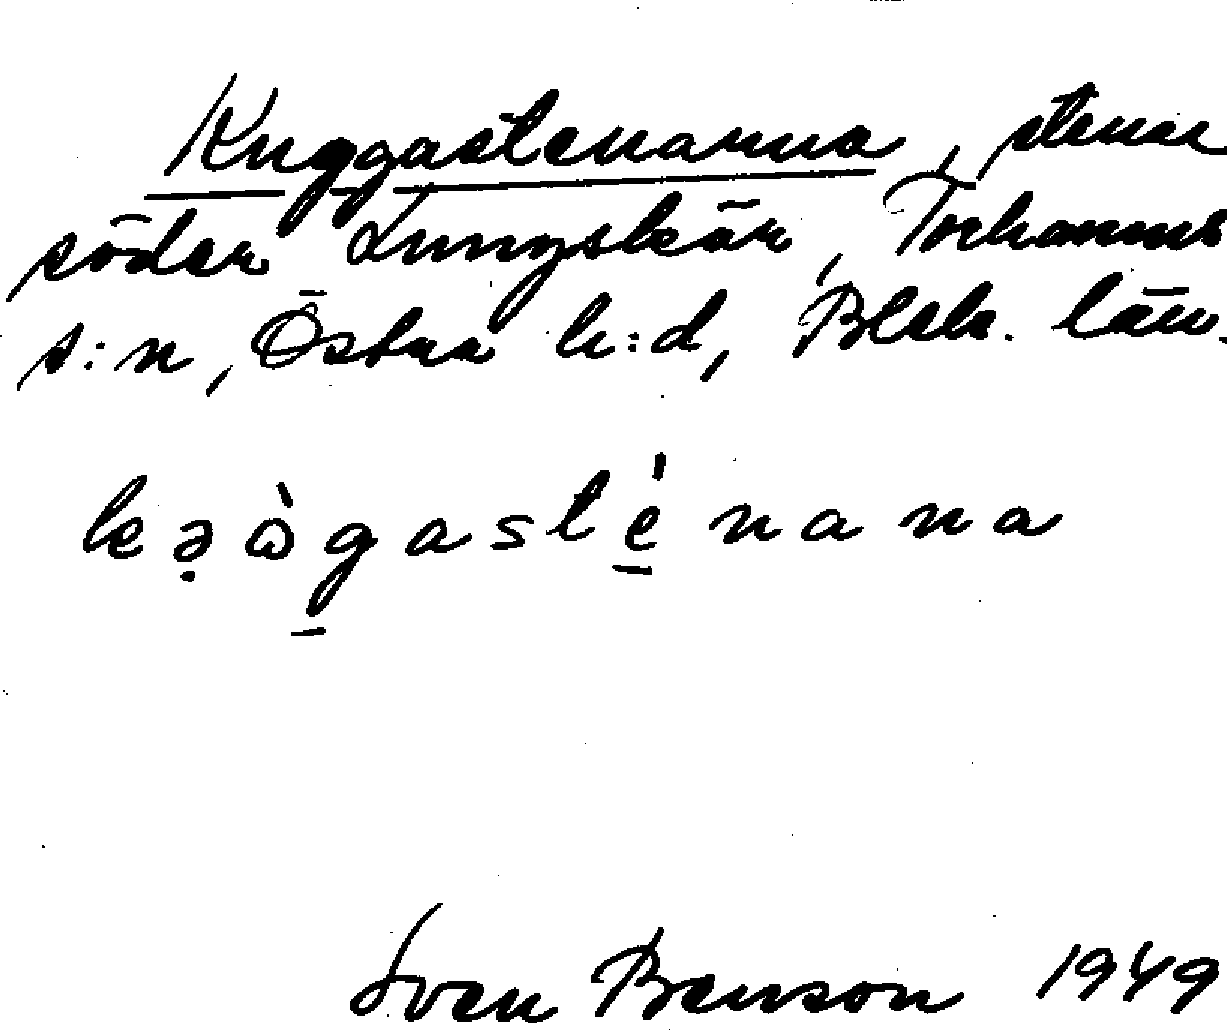 Kuggastenarna, stenar
söder Lungskär, Torhamns
s:n, Östra h:d, Blek. län.
Sven Benson 1949